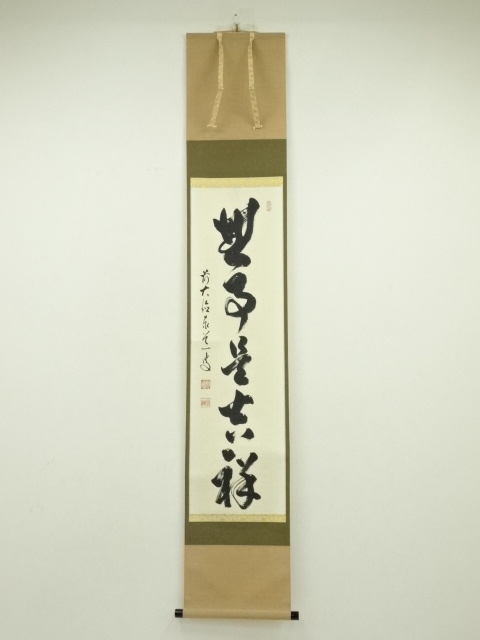 無事是吉祥
前大徳